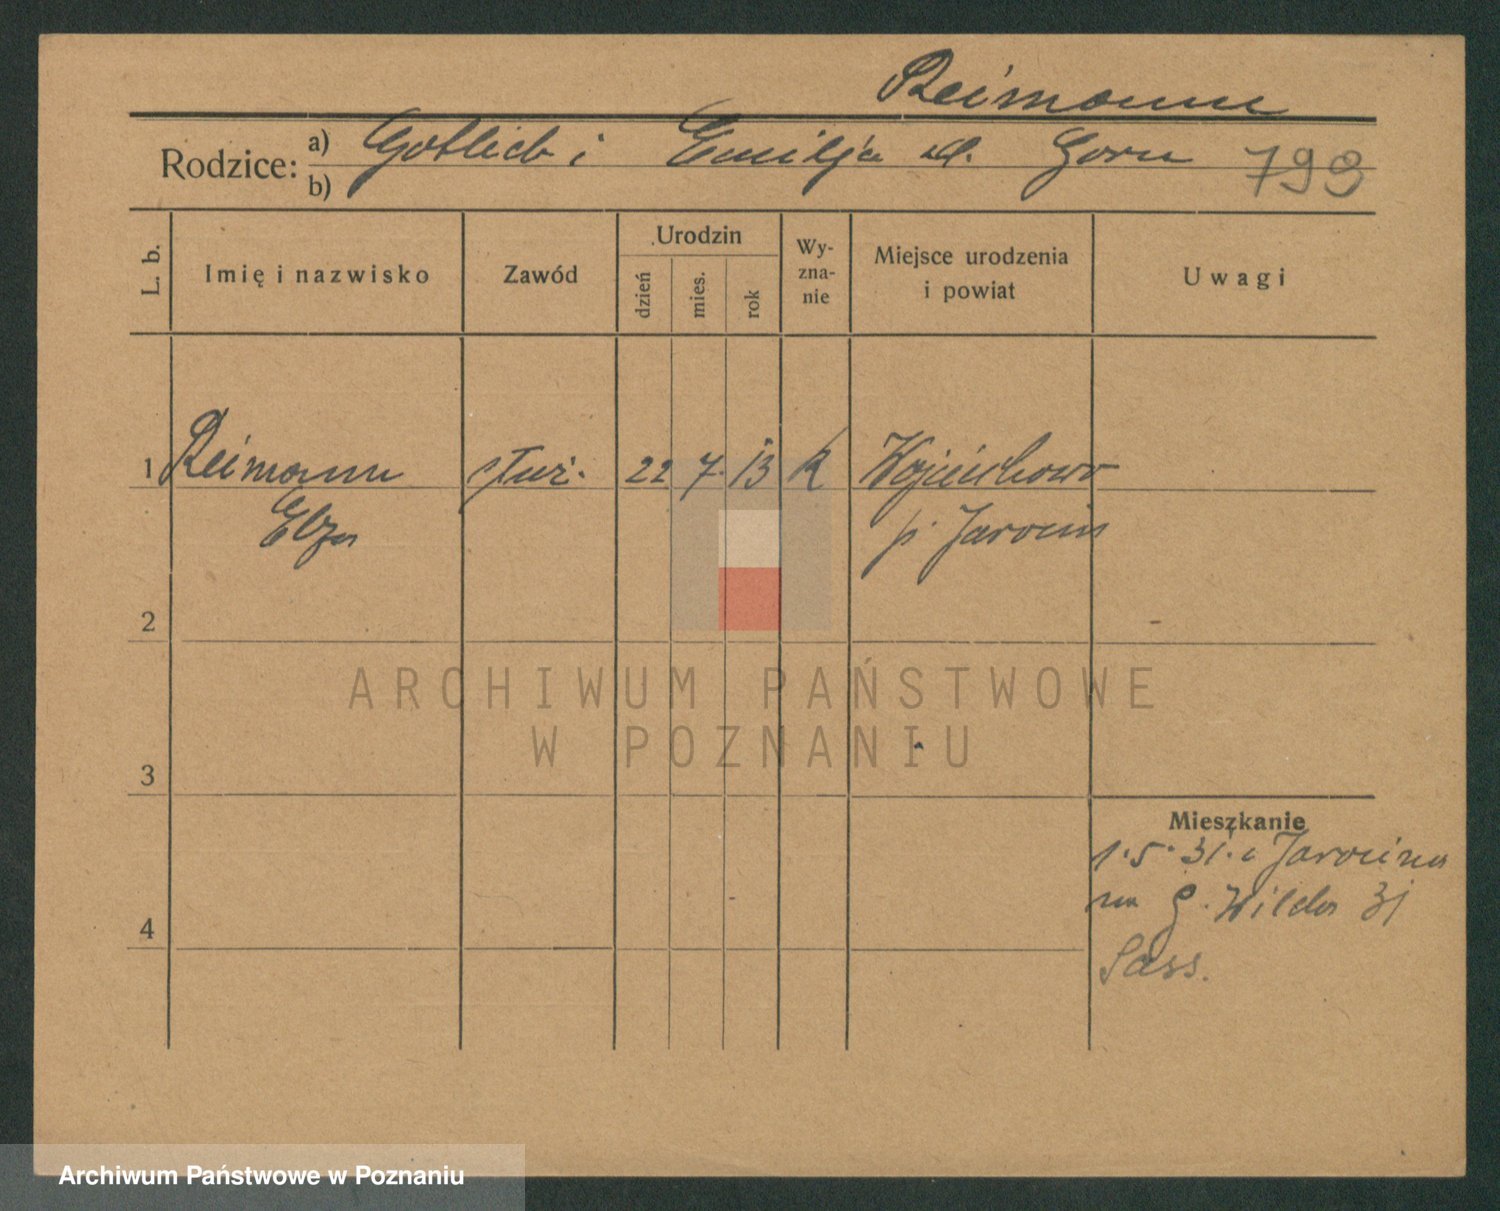 Reimann
Rodzice: a) Gotlieb i Emilja d. Gorn 798
b)
L. b.
Imię i nazwisko
Zawód
Urodzin
dzień
mies.
rok
Wy-
zna-
nie
Miejsce urodzenia
i powiat
Uwagi
1 Reimann służ. 22 7. 13 k Wojciechowo
Elza p. Jarocin
2
ARCHIWUM PAŃSTWOWE
W POZNANIU
3
Mieszkanie
1.5.31. z Jarocina
na G. Wilda 31
Sass.
4
Archiwum Państwowe w Poznaniu